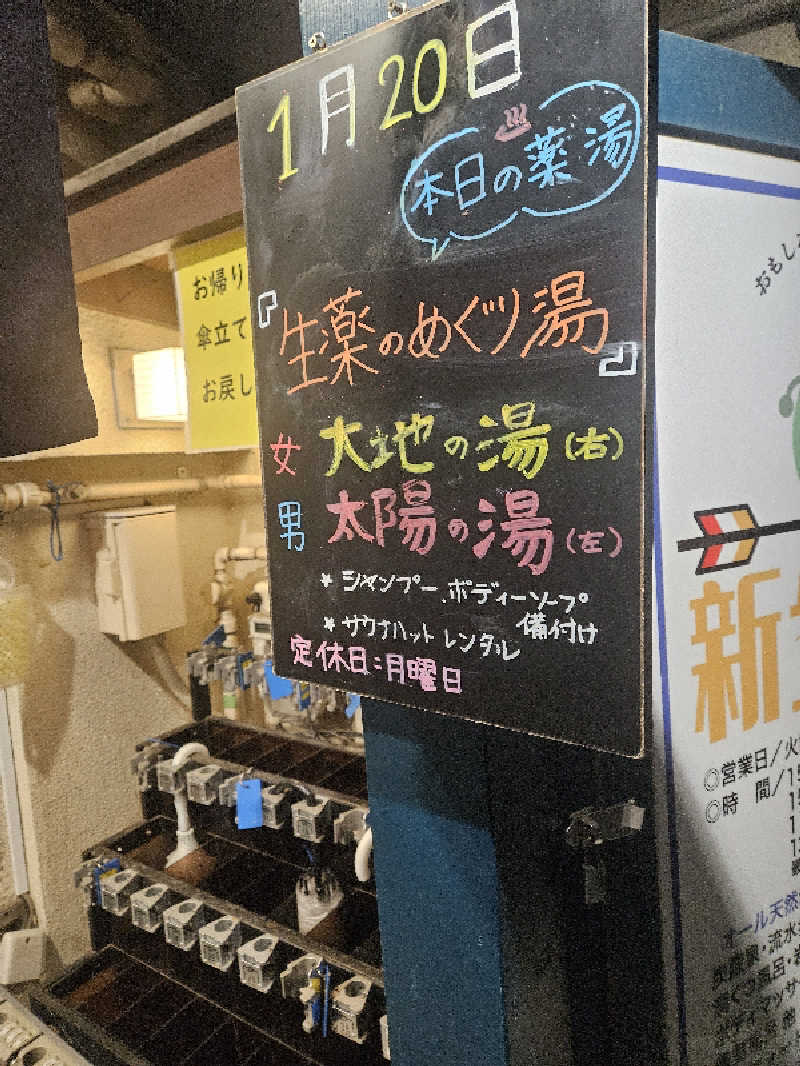 1月20日
本日の薬湯
『生薬のめぐり湯』
女 大地の湯(右)
男 太陽の湯(左)
* シャンプー、ボディーソープ
備付け
* サウナハットレンタル
定休日:月曜日
お帰り
傘立て
お戻し
おもし
新
◎営業日/火
◎時 間/15
オール天然